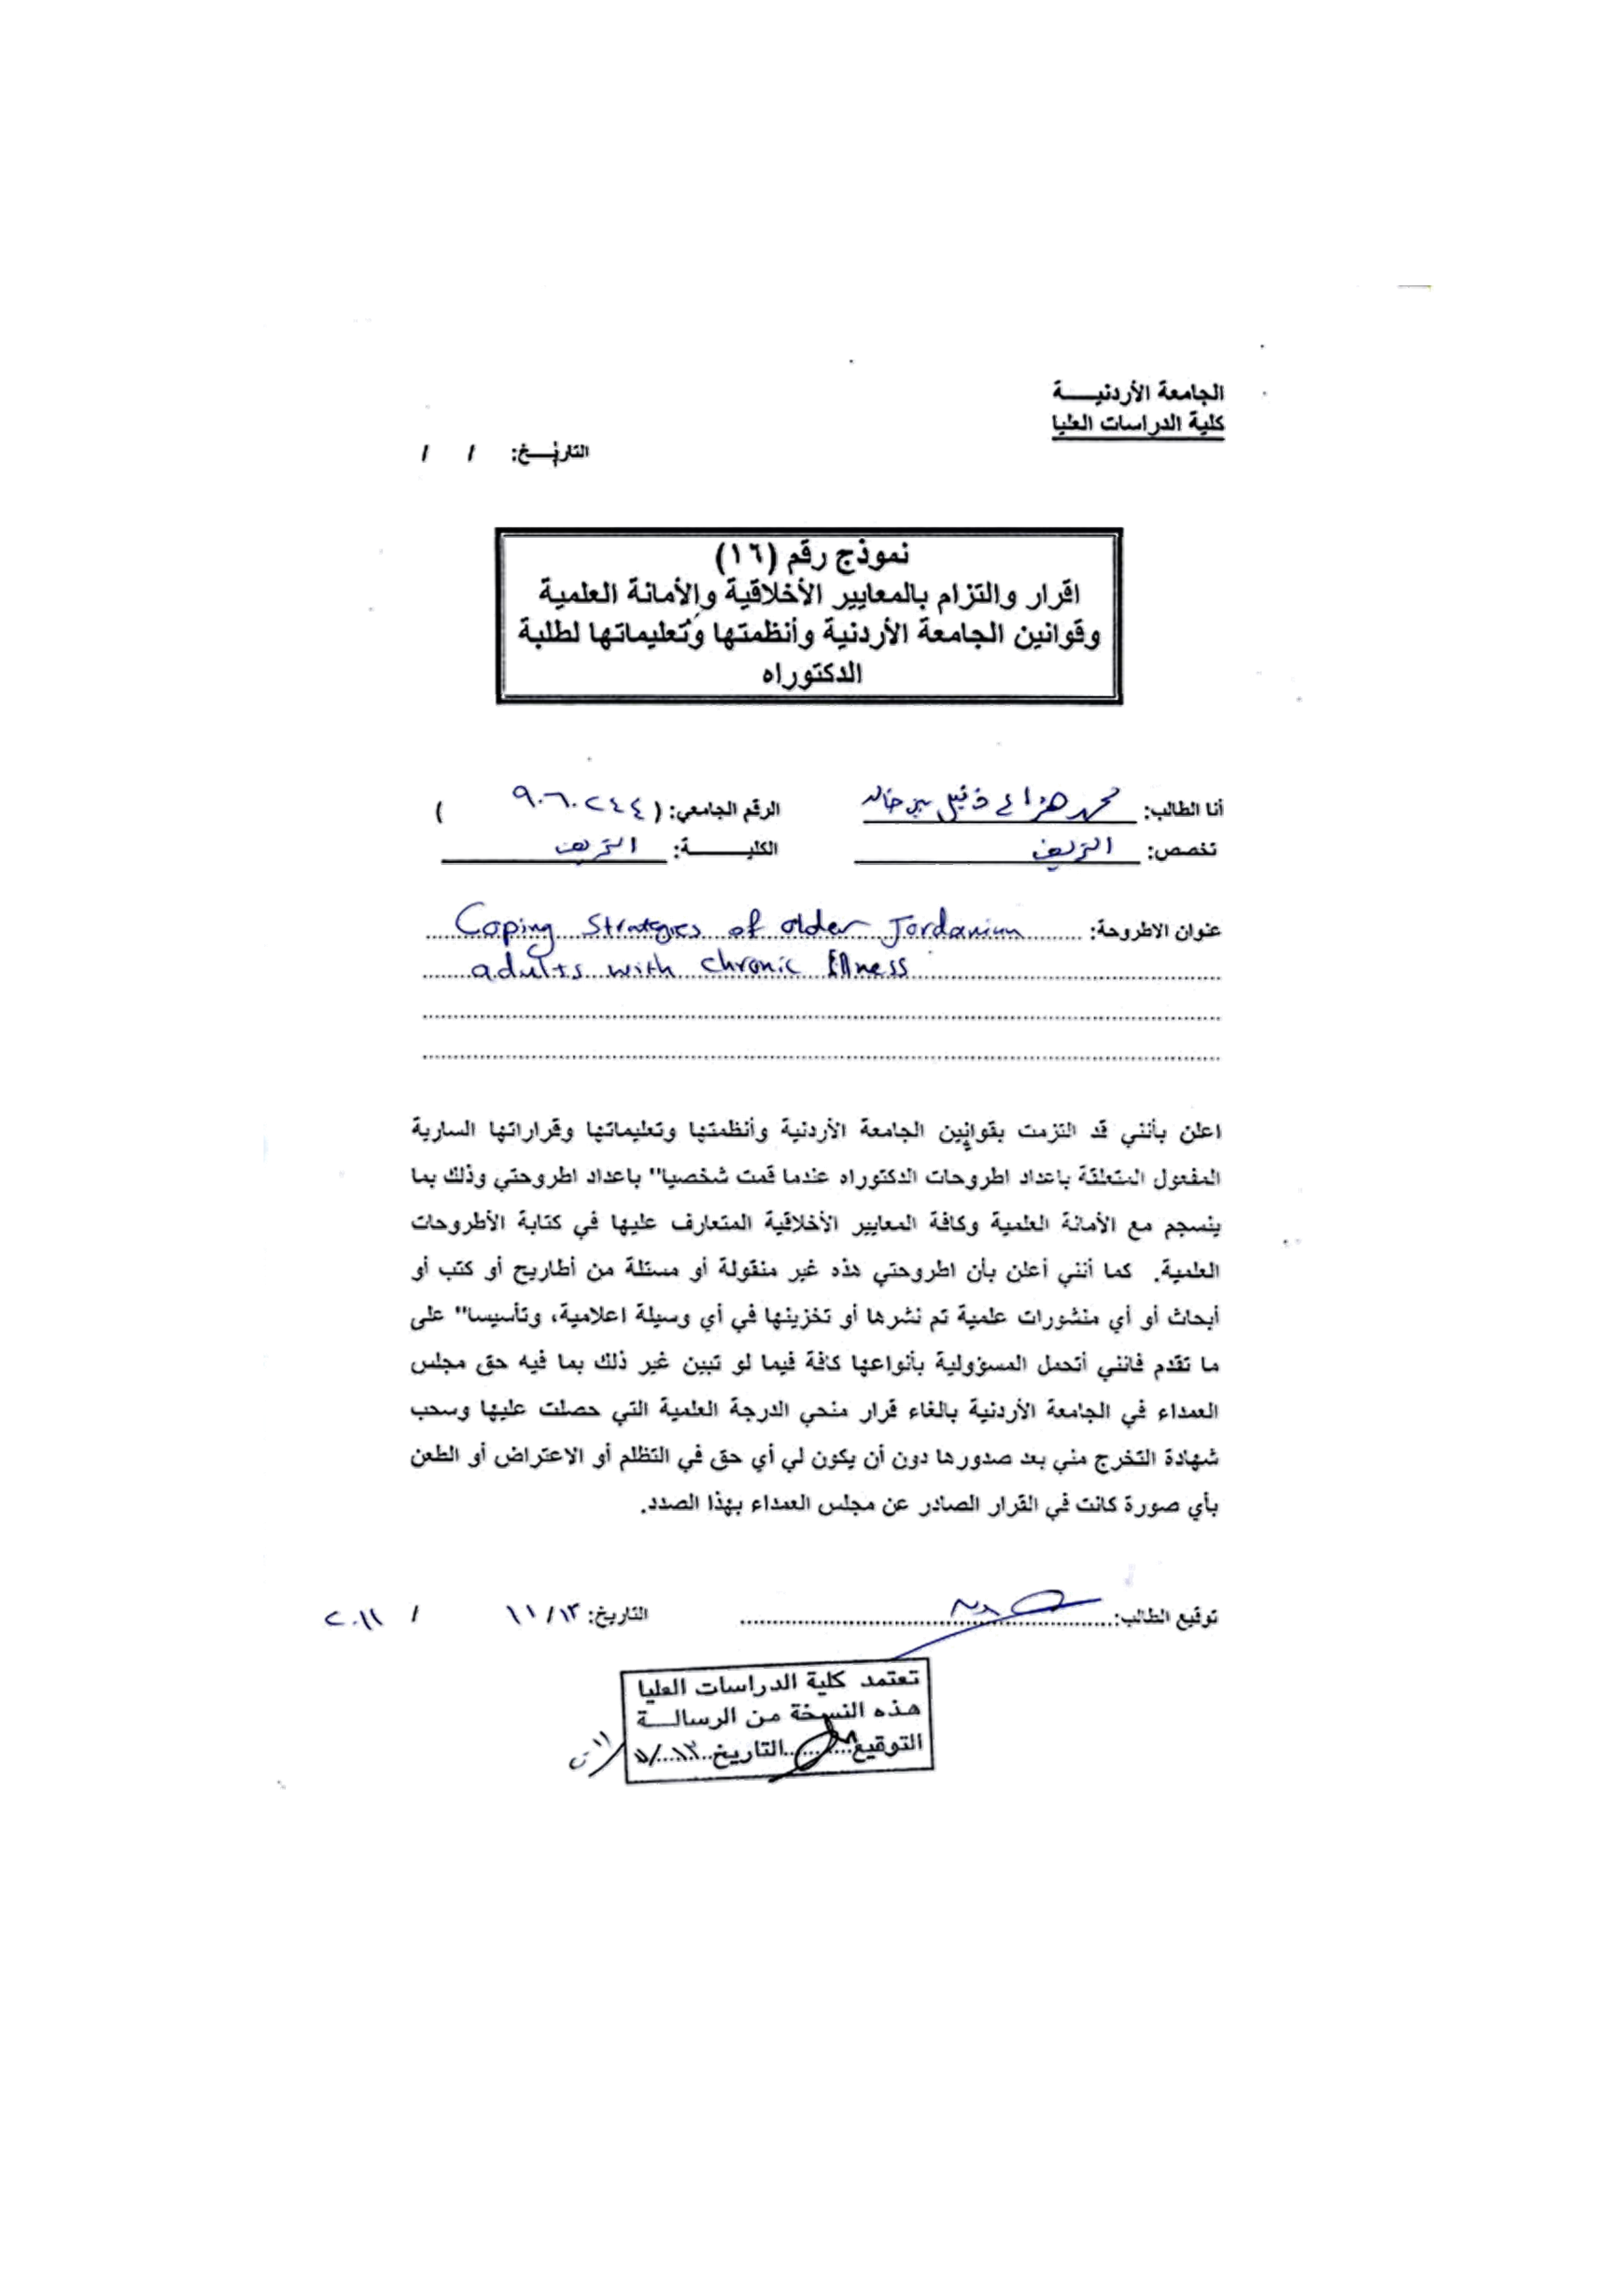 الجامعة الأردنيـــــة
كلية الدراسات العليا
التاريـــخ: / /
نموذج رقم (١٦)
اقرار والتزام بالمعايير الأخلاقية والأمانة العلمية
وقوانين الجامعة الأردنية وأنظمتها وتعليماتها لطلبة
الدكتوراه
أنا الطالب: محمد هزاع خالد الرقم الجامعي: ( ٩٠٦٠٢٤٤ )
تخصص: التمريض الكليـــــــة: التمريض
عنوان الاطروحة: Coping Strategies of older Jordanian
adults with chronic illness
اعلن بأنني قد التزمت بقوانين الجامعة الأردنية وأنظمتها وتعليماتها وقراراتها السارية
المفعول المتعلقة باعداد اطروحات الدكتوراه عندما قمت شخصيا" باعداد اطروحتي وذلك بما
ينسجم مع الأمانة العلمية وكافة المعايير الأخلاقية المتعارف عليها في كتابة الأطروحات
العلمية. كما أنني أعلن بأن اطروحتي هذه غير منقولة أو مستلة من أطاريح أو كتب أو
أبحاث أو أي منشورات علمية تم نشرها أو تخزينها في أي وسيلة اعلامية، وتأسيسا" على
ما تقدم فانني أتحمل المسؤولية بأنواعها كافة فيما لو تبين غير ذلك بما فيه حق مجلس
العمداء في الجامعة الأردنية بالغاء قرار منحي الدرجة العلمية التي حصلت عليها وسحب
شهادة التخرج مني بعد صدورها دون أن يكون لي أي حق في التظلم أو الاعتراض أو الطعن
بأي صورة كانت في القرار الصادر عن مجلس العمداء بهذا الصدد.
توقيع الطالب: التاريخ: ١٣/ ١١ / ٢٠١١
تعتمد كلية الدراسات العليا
هذه النسخة من الرسالـــة
التوقيع التاريخ